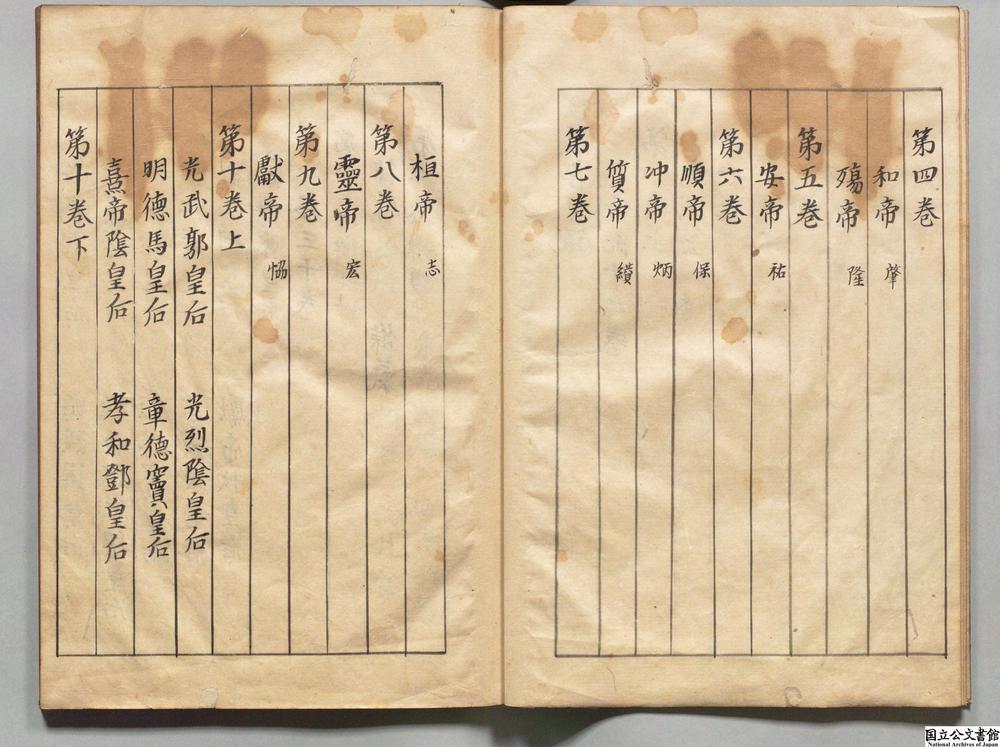 第四巻
和帝 肇
殤帝 隆
第五巻
安帝 祐
第六巻
順帝 保
冲帝 炳
質帝 纉
第七巻
桓帝 志
第八巻
靈帝 宏
第九巻
獻帝 恊
第十巻上
光武郭皇后 光烈陰皇后
明德馬皇后 章德竇皇后
熹帝陰皇后 孝和鄧皇后
第十巻下
国立公文書館
National Archives of Japan